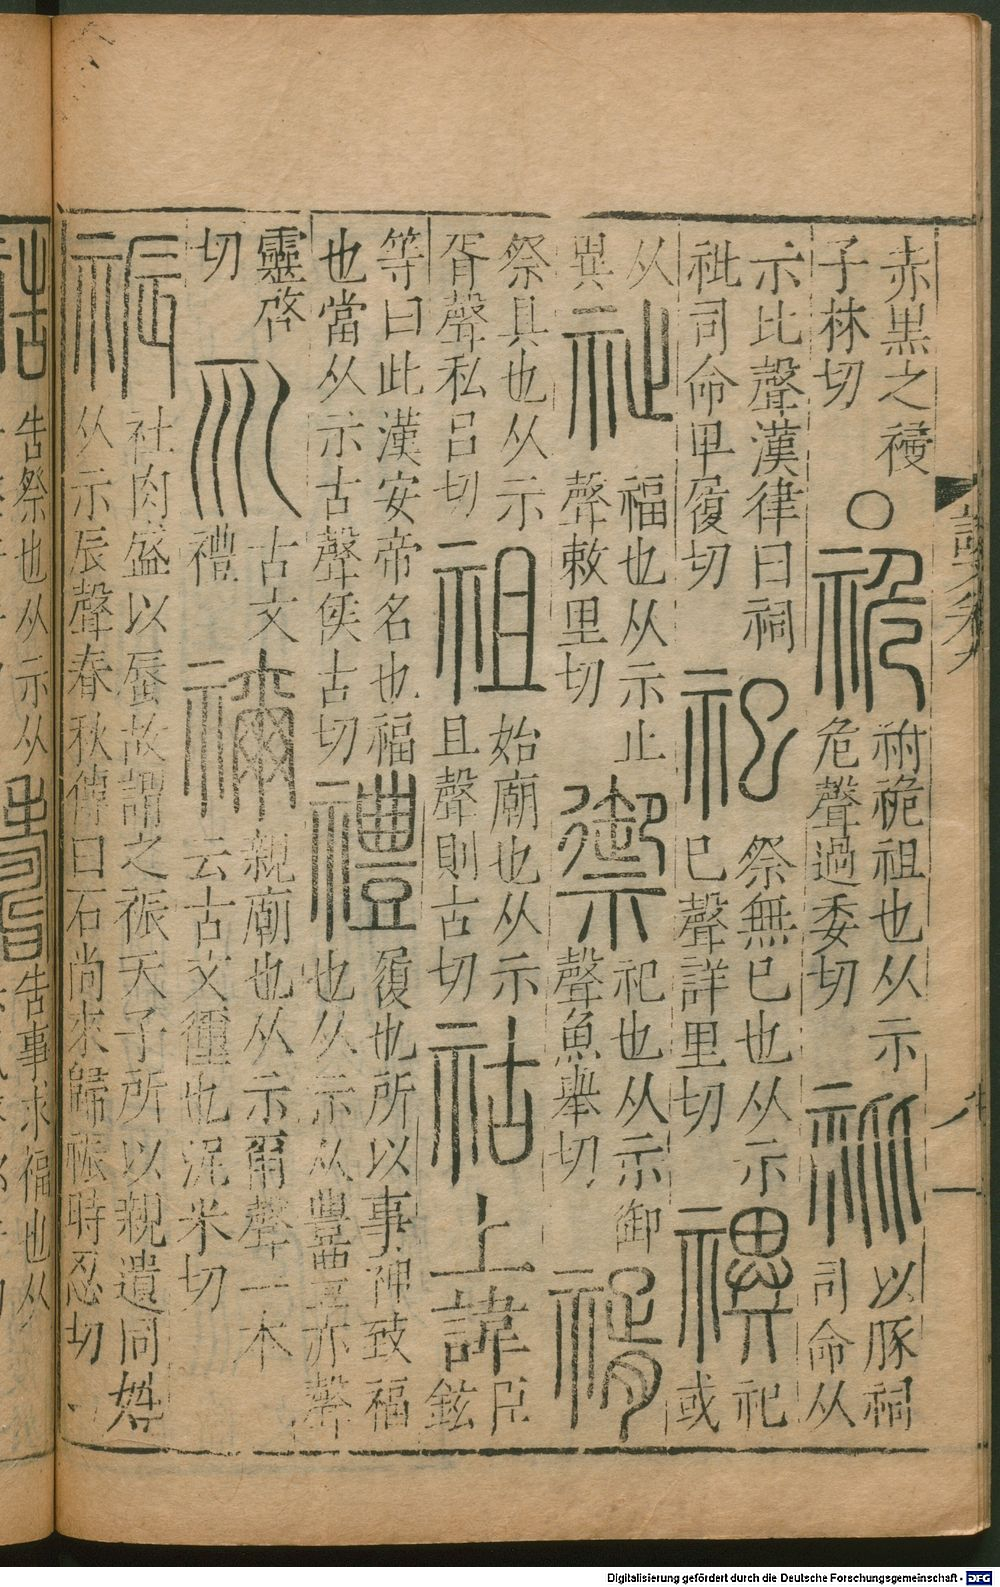 赤黒之祲
子林切
○
祪
祔祪祖也从示
危聲過委切
𥘶
以豚祠司命从
示比聲漢律曰祠
祉司命甲履切
祀
祭無已也从示
巳聲詳里切
禩
祀或
从異
祉
福也从示止
聲敕里切
禦
祀也从示御
聲魚舉切
祭具也从示
胥聲私呂切
祖
始廟也从示
且聲則古切
祜
上諱
臣鉉
等曰此漢安帝名也福
也當从示古聲侯古切
禮
履也所以事神致福
也从示从豐豐亦聲
靈啓切
古文禮
禰
親廟也从示爾聲一本
云古文𥜬也泥米切
祳
社肉盛以蜃故謂之祳天子所以親遺同姓
从示辰聲春秋傳曰石尚來歸祳時忍切
告祭也从示从
告事求福也从
Digitalisierung gefördert durch die Deutsche Forschungsgemeinschaft - DFG